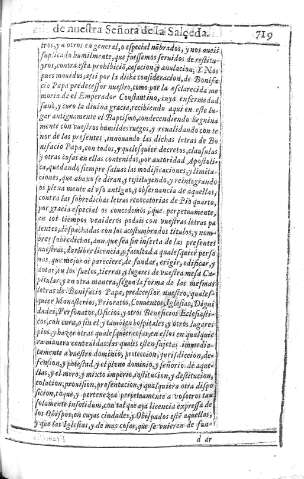 de nuestra Señora de la Salceda. 719
tros, y a otros en general, o especial nõbrados, y nos aueis
suplicado humilmente, que fuessemos seruidos de restitu-
yros, contra esta prohibiciõ, casacion, o anulacion; Y Nos
pues mouidos, assi por la dicha consideracion, de Bonifa-
cio Papa predecessor nuestro, como por la esclarecida me
moria de el Emperador Constantino, cuya enfermedad
sanò, y cura la diuina gracia, recibiendo aqui en este lu-
gar antiguamente el Baptismo, condecendiendo benigna
mente con vuestros humildes ruegos, y reualidando con te-
nor de las presentes, innouando las dichas letras de Bo-
nifacio Papa, con todos, y qualesquier decretos, clausulas
y otras cosas en ellas contenidas, por autoridad Apostoli-
ca, quedando siempre saluas las modificaciones, y limita-
ciones, que abaxo se diran, restituyendo, y reintegrando
os plenamente al vso antiguo, y obseruancia de aquellos,
contra las sobredichas letras reuocatorias de Pio quarto,
por gracia especial os concedemos, que perpetuamente,
en los tiempos venideros podais con vuestras letras pa-
tentes, despachadas con los acostumbrados titulos, y nom-
bres sobredichos, aun que sea sin inserta de las presentes
nuestras, dar libre licencia, y facultad a qualesquier perso
nas, que mejor os pareciere, de fundar, erigir, edificar, y
dotar, en los suelos, tierras, y lugares de vuestra mesa Ca-
pitular, y en otra manera, segun la forma de las mesmas
letras de Bonifacio Papa, predecessor nuestro, quales-
quier Monasterios, Prioratos, Conuentos, Iglesias, Digni
dades, Personatos, Oficios, y otros Beneficios Eclesiasti-
cos, con cura, o sin el, y tambien hospitales, y otros lugares
pios, y hazer que las qualesquier cosas, en ellos en qualquie
ra manera contenidas, les qualis esten sujetas inmedia-
tamente a vuestro dominio, proteccion, jurisdiccion, de-
fension, y potestad, y el pleno dominio, y señorio, de aque-
llas, y el mero, y mixto imperio, institucion, y destitucion,
colacion, prouision, presentacion, y qualquiera otra dispo-
sicion, toque, y pertenezca perpetuamente a vosotros tan
solamente insolidum, con tal que aya licencia expressa de
los Obispos, en cuyas ciudades, y Obispados estè aquellas,
y que las Iglesias, y de mas cosas, que se vuieren de fun-
d ar